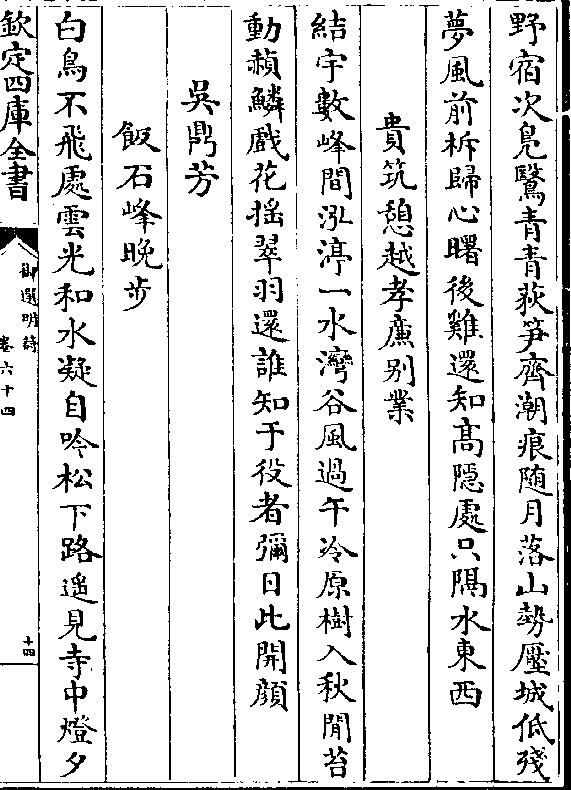 野宿次鳬鷖青青荻笋齊潮痕随月落山勢壓城低殘
夢風前柝歸心曙後雞還知髙隠處只隔水東西
貴筑憩越孝廉别業
結宇數峰間泓渟一水灣谷風過午冷原樹入秋閒苔
動頳鱗戲花揺翠羽還誰知于役者彌日此開顔
吳鼎芳
飯石峰晚步
白鳥不飛處雲光和水凝自吟松下路遥見寺中燈夕
欽定四庫全書
御選明詩
卷六十四
十四